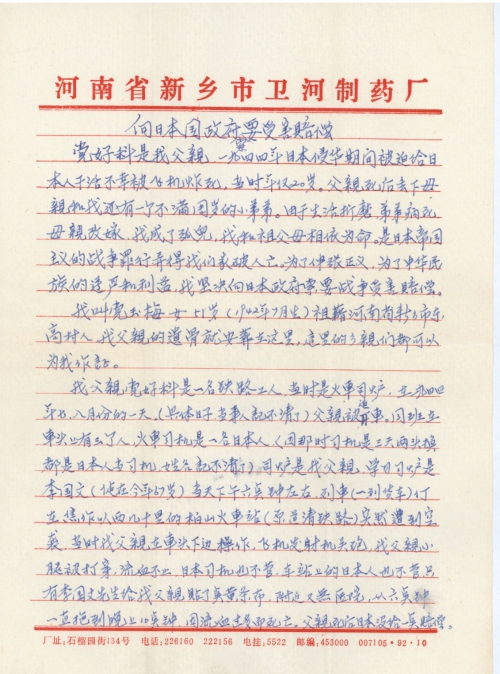 河南省新乡市卫河制药厂
向日本国政府要受害赔偿
党好科是我父亲，一九四四年日本侵华期间被迫给日
本人干活不幸被飞机炸死，当时年仅20岁。父亲死后丢下母
亲和我还有一个不满周岁的小弟弟。由于生活折磨弟弟病死
母亲改嫁，我成了孤儿，我和祖父母相依为命。是日本帝国
主义的战争罪行弄得我们家破人亡。为了伸张正义，为了中华民
族的尊严和利益，我坚决向日本政府索要战争受害赔偿。
我叫党玉梅 女 51岁（1942年7月生）祖籍河南省新乡市东
高村人，我父亲的遗骨就安葬在这里，这里的乡亲们都可以
为我作证。
我父亲党好科是一名铁路工人，当时是火车司炉，在一九四四
年，八月份的一天（具体日子当事人记不清了）父亲被迫开车。同班在
车头上有三个人，火车司机是一名日本人（因那时司机是三天两头换
都是日本人当司机，姓名记不清了）司炉是我父亲，学习司炉是
李国文（他在今年67岁）当天下午六点钟左右，列车（一列货车）行
至焦作以西几十里的柏山火车站（原道清铁路）突然遭到空
袭，当时我父亲在车头下边操作，飞机发射机关炮，我父亲小
腿被打穿，流血不止，日本司机也不管，车站上的日本人也不管只
有李国文先生给我父亲贴了点黄表布，附近又无医院，从六点钟
一直拖到晚上10点钟，因流血过多而死亡。父亲死后日本没给一点赔偿。
厂址：石榴园街134号 电话：226160 222156 电挂：5522 邮编：453000 007105·92·10